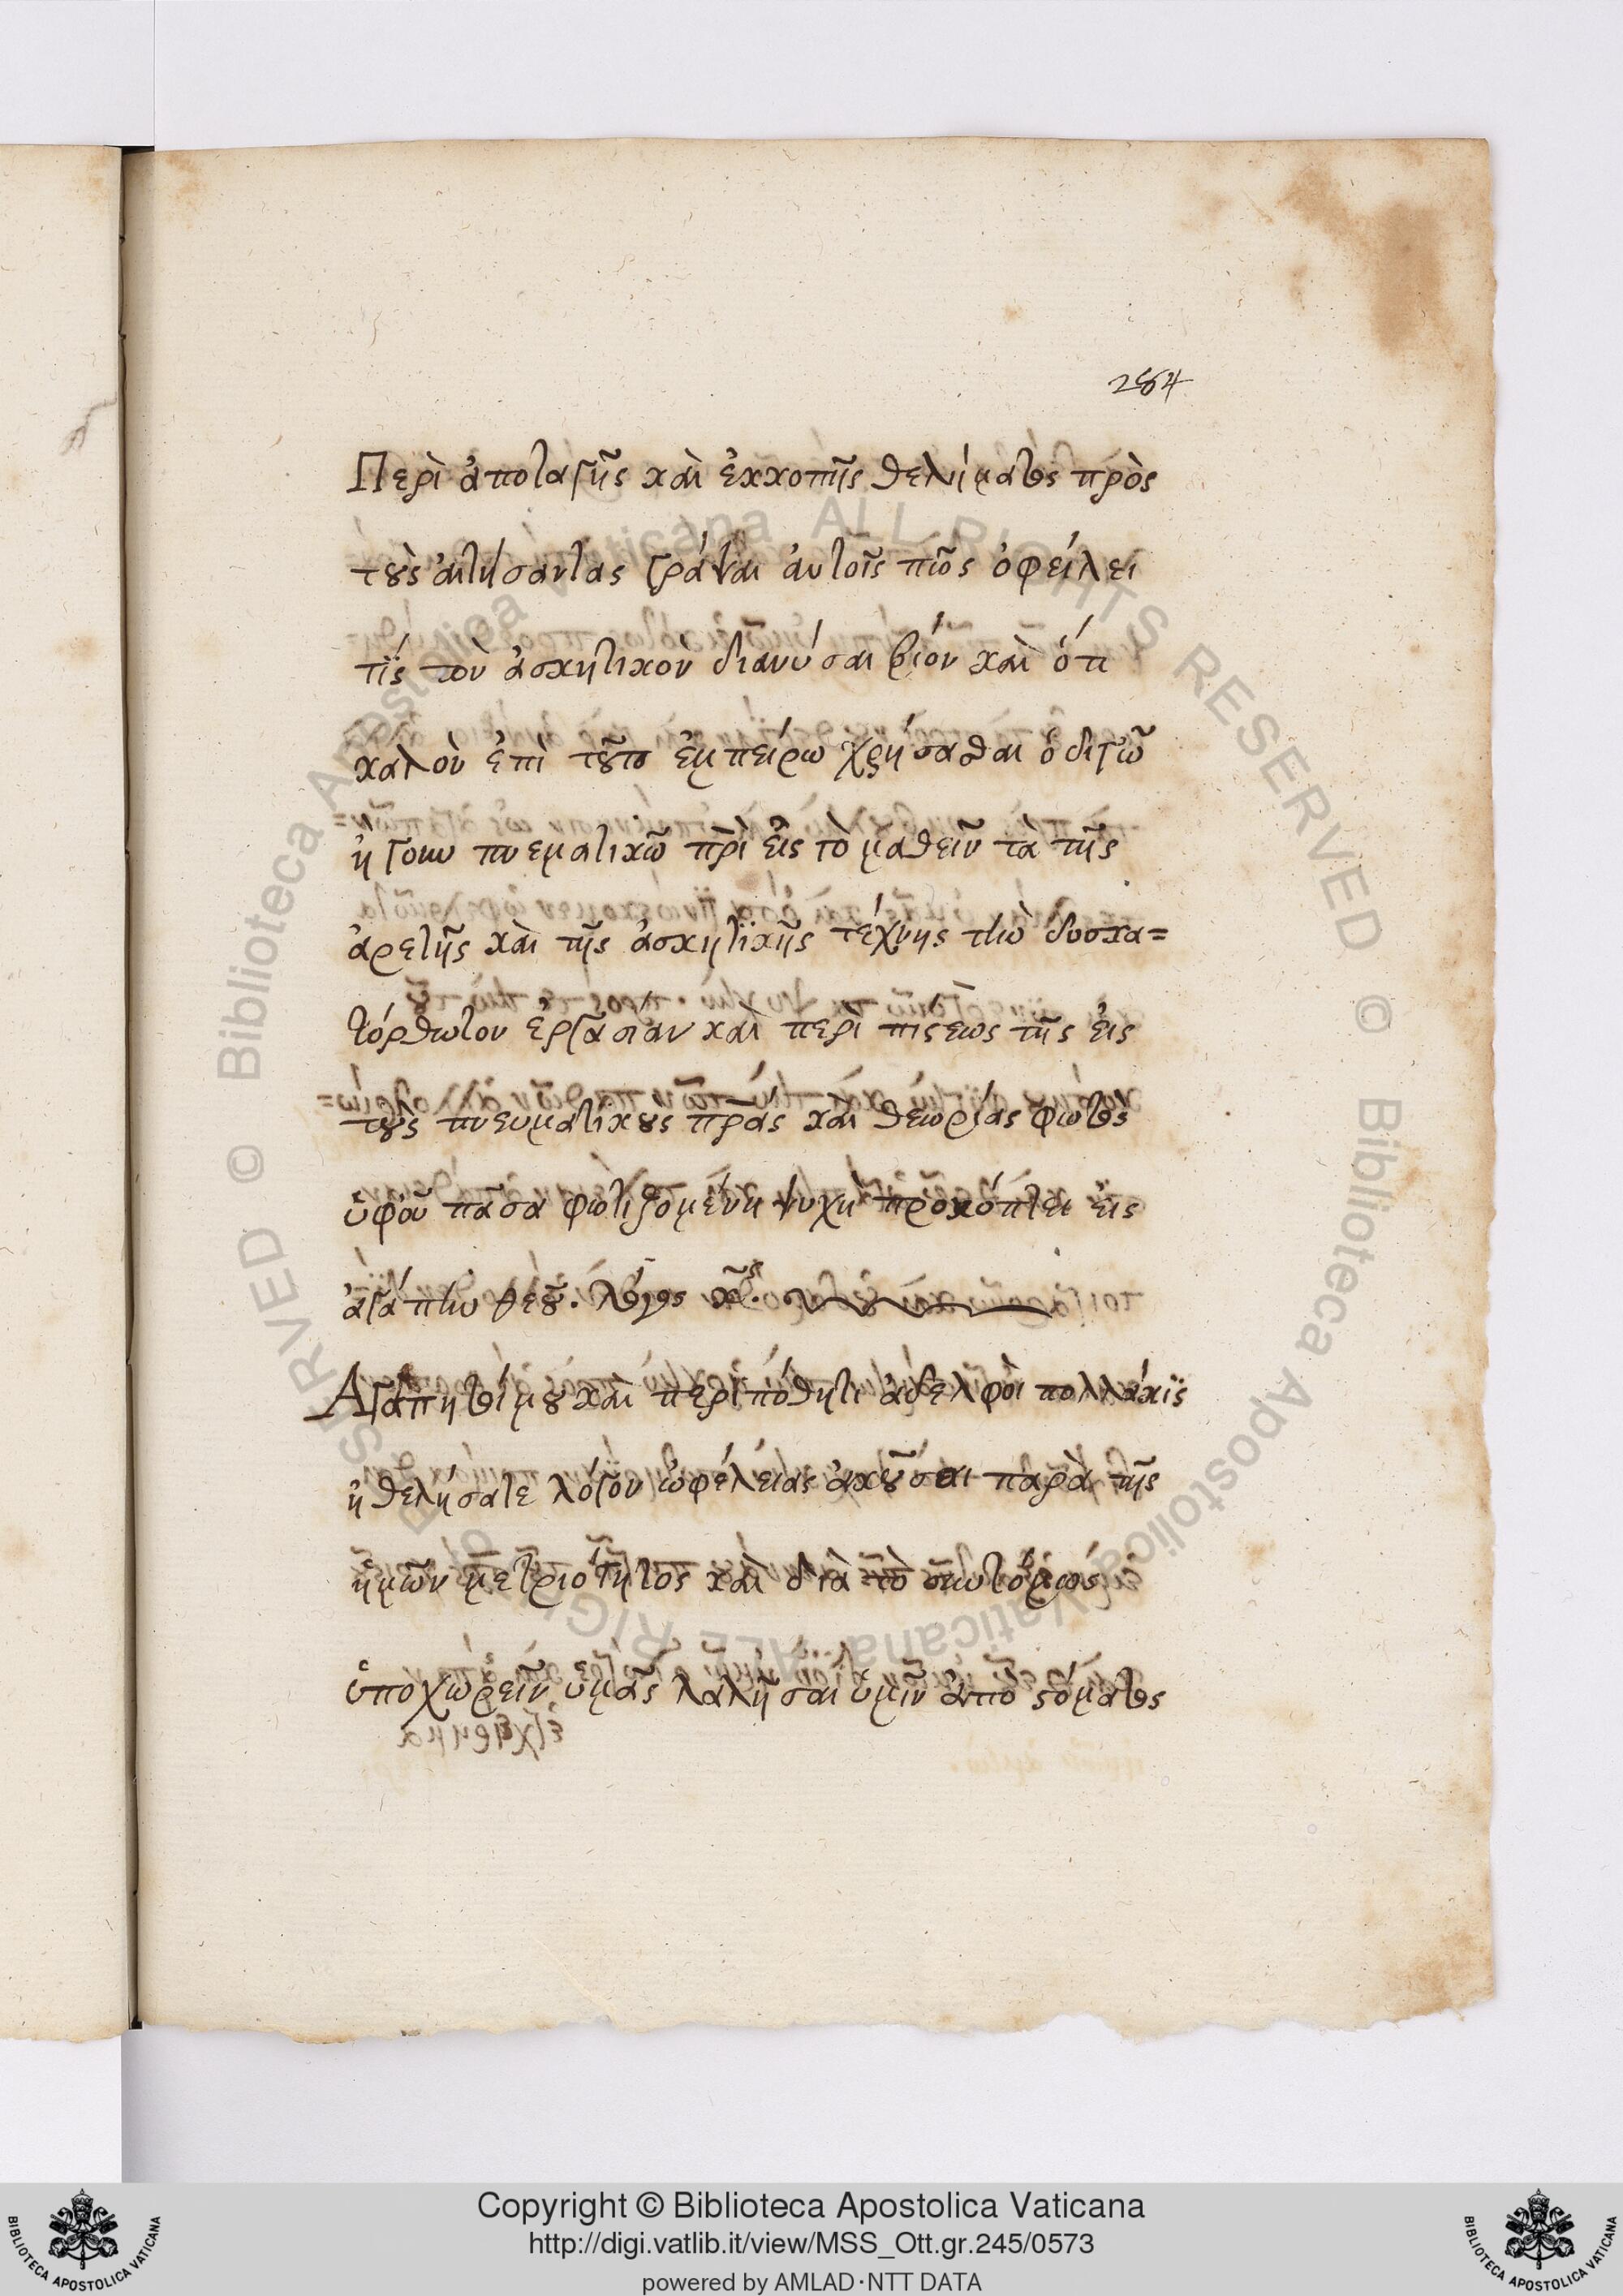 284
Περὶ ἀποταγῆς καὶ ἐκκοπῆς θελήματος πρὸς
τοὺς αἰτήσαντας γράψαι αὐτοῖς πῶς ὀφείλει
τίς τὸν ἀσκητικὸν διανύσαι βίον καὶ ὅτι
καλὸν ἐπὶ τούτο ἐμπείρω χρήσασθαι ὁδιγῶ
ἤγουν πνεματικῶ πρὶ εἰς τὸ μαθεῖν τὰ τῆς
ἀρετῆς καὶ τῆς ἀσκητϊκῆς τέχνης τὴν δυσκα=
τόρθωτον ἐργασίαν καὶ περὶ πίστεως τῆς εἰς
τοὺς πνευματικους πρας καὶ θεωρίας φωτος
ὑφοὗ πᾶσα φωτιζομένη ψυχὴ προκόπτει εἰς
ἀγάπην θεοῦ. λόγος
Ἀγαπητοί μου καὶ περιπόθητι ἀδελφοὶ πολλάκϊς
ἠθελήσατε λόγον ὠφέλείας ἀκοῦσαι παρὰ τῆς
ἡμῶν μετριότητος καὶ διὰ τὸ συντόμως
ὑποχωρεῖν ὑμᾶς λαλῆσαι ὑμῖν ἀπὸ στόματος
Copyright © Biblioteca Apostolica Vaticana
http://digi.vatlib.it/view/MSS_Ott.gr.245/0573
powered by AMLAD·NTT DATA
BIBLIOTECA APOSTOLICA VATICANA
BIBLIOTECA APOSTOLICA VATICANA
© Biblioteca Apostolica Vaticana ALL RIGHTS RESERVED
© Biblioteca Apostolica Vaticana ALL RIGHTS RESERVED